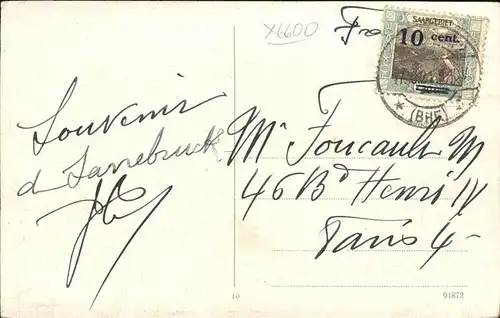 X6600
SAARGEBIET
10 cent.
(BHF)
Souvenir
de Sarrebruck
Mr Foucault M
46 Bd Henri IV
Paris 4
10
94872